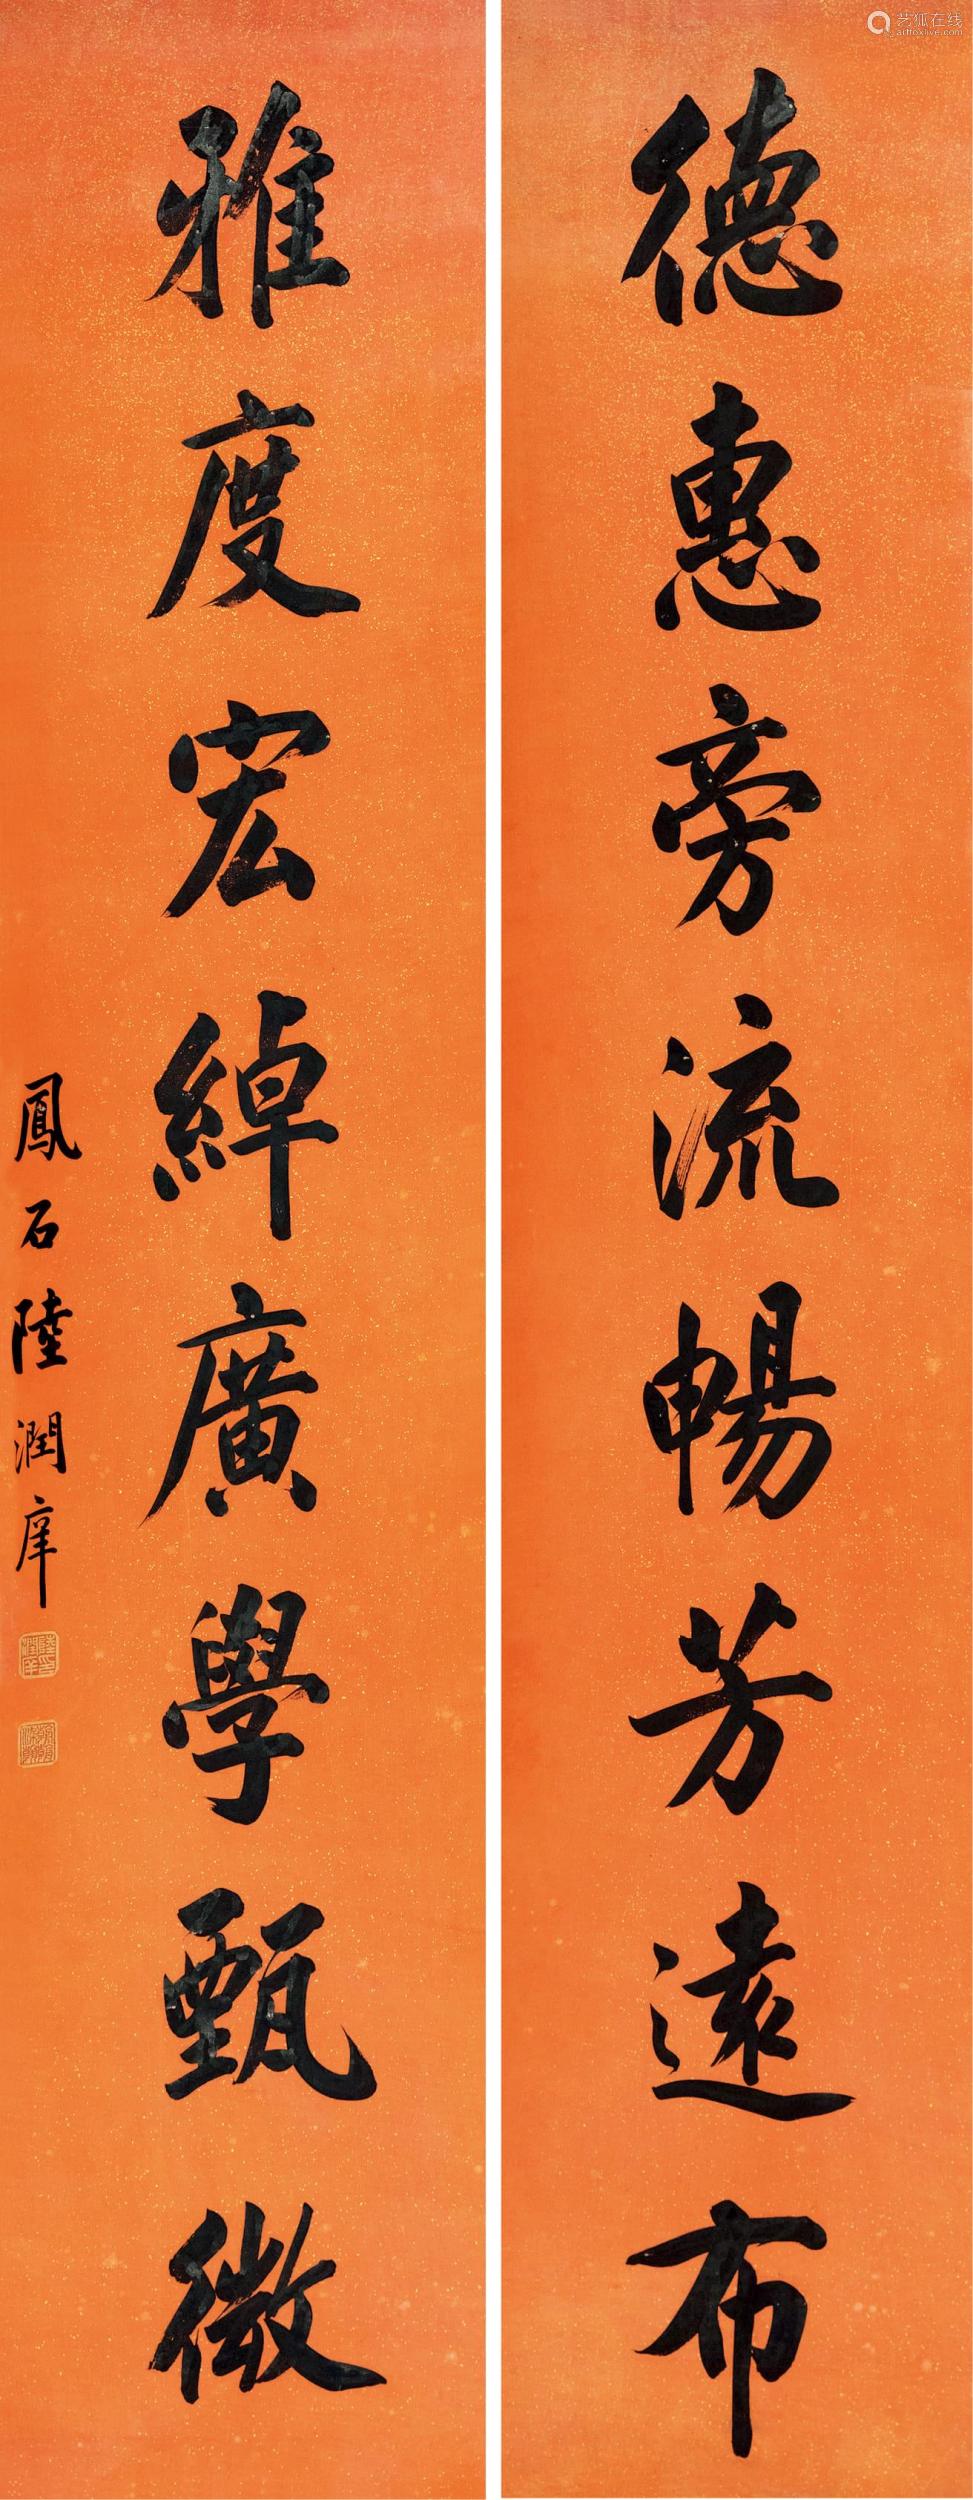 德惠旁流暢芳遠布
雅度宏綽廣學甄微
鳳石陸潤庠
艺狐在线
artfoxlive.com